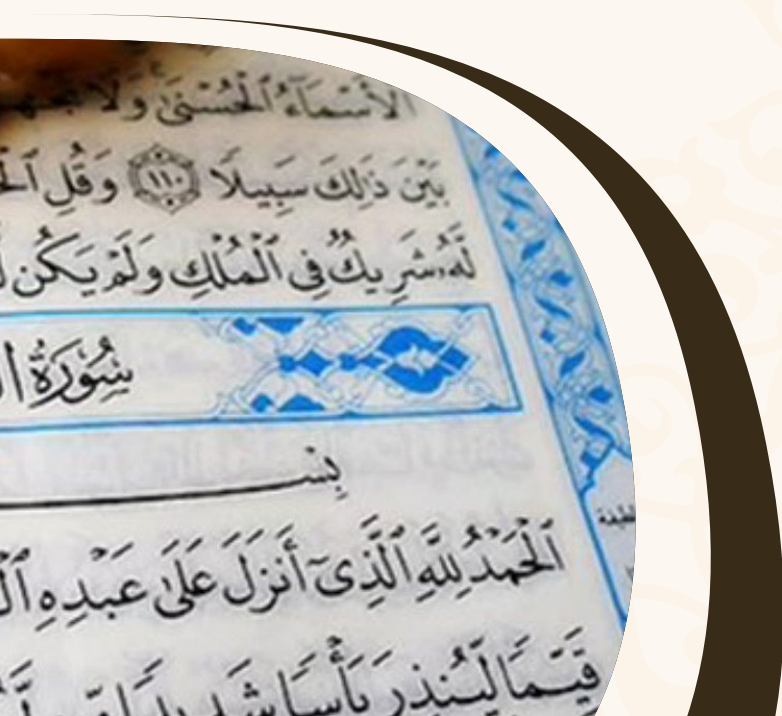 ٱلْأَسْمَآءُ ٱلْحُسْنَىٰ وَلَا
بَيْنَ ذَٰلِكَ سَبِيلًا ١١٠ وَقُلِ
لَّهُۥ شَرِيكٌ فِى ٱلْمُلْكِ وَلَمْ يَكُن
سُورَةُ
بِسْ
ٱلْحَمْدُ لِلَّهِ ٱلَّذِىٓ أَنزَلَ عَلَىٰ عَبْدِهِ
قَيِّمًا لِّيُنذِرَ بَأْسًا شَدِيدًا